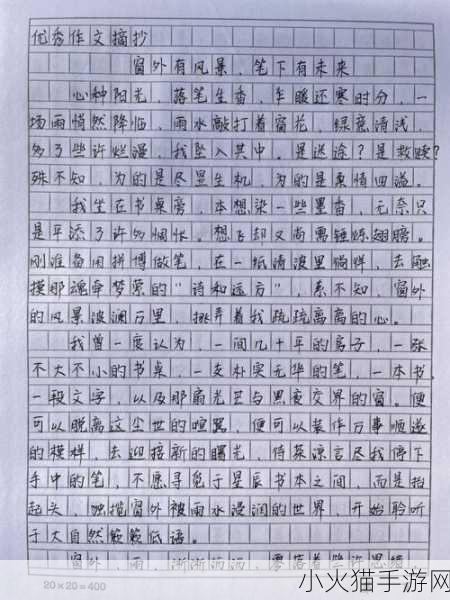 优秀作文摘抄
窗外有风景，笔下有未来
心种阳光，落笔生香，乍暖还寒时分，一
场雨悄然降临，雨水敲打着窗花，绿意清浅，
多了些许烂漫，我坠入其中。是迷途？是救赎？
殊不知，为的是尽显生机，为的是柔情四溢。
我坐在书桌旁，本想染一些墨香，无奈只
是平添了许多惆怅。想飞却又尚需锤炼翅膀。
刚准备用拼博做笔，在一纸清波里徜徉，去触
摸那魂牵梦萦的“诗和远方”，殊不知，窗外
的风景波澜万里，拨弄着我疏疏离离的心。
我曾一度认为，一间几十年的房子，一张
不大不小的书桌，一支朴实无华的笔，一本书，
一段文字，以及那扇光芒与黑夜交界的窗。便
可以脱离这尘世的喧嚣，便可以装作万事顺遂
的模样，去迎接新的曙光，待菉凉言尽我停下
手中的笔，不愿寻觅于星辰书本之间，而是抬
起头，独揽窗外被雨水浸润的世界，开始聆听
于大自然簌簌低语。
窗外，雨，淅淅沥沥，零落着些许思绪，
20×20=400
小火猫手游网